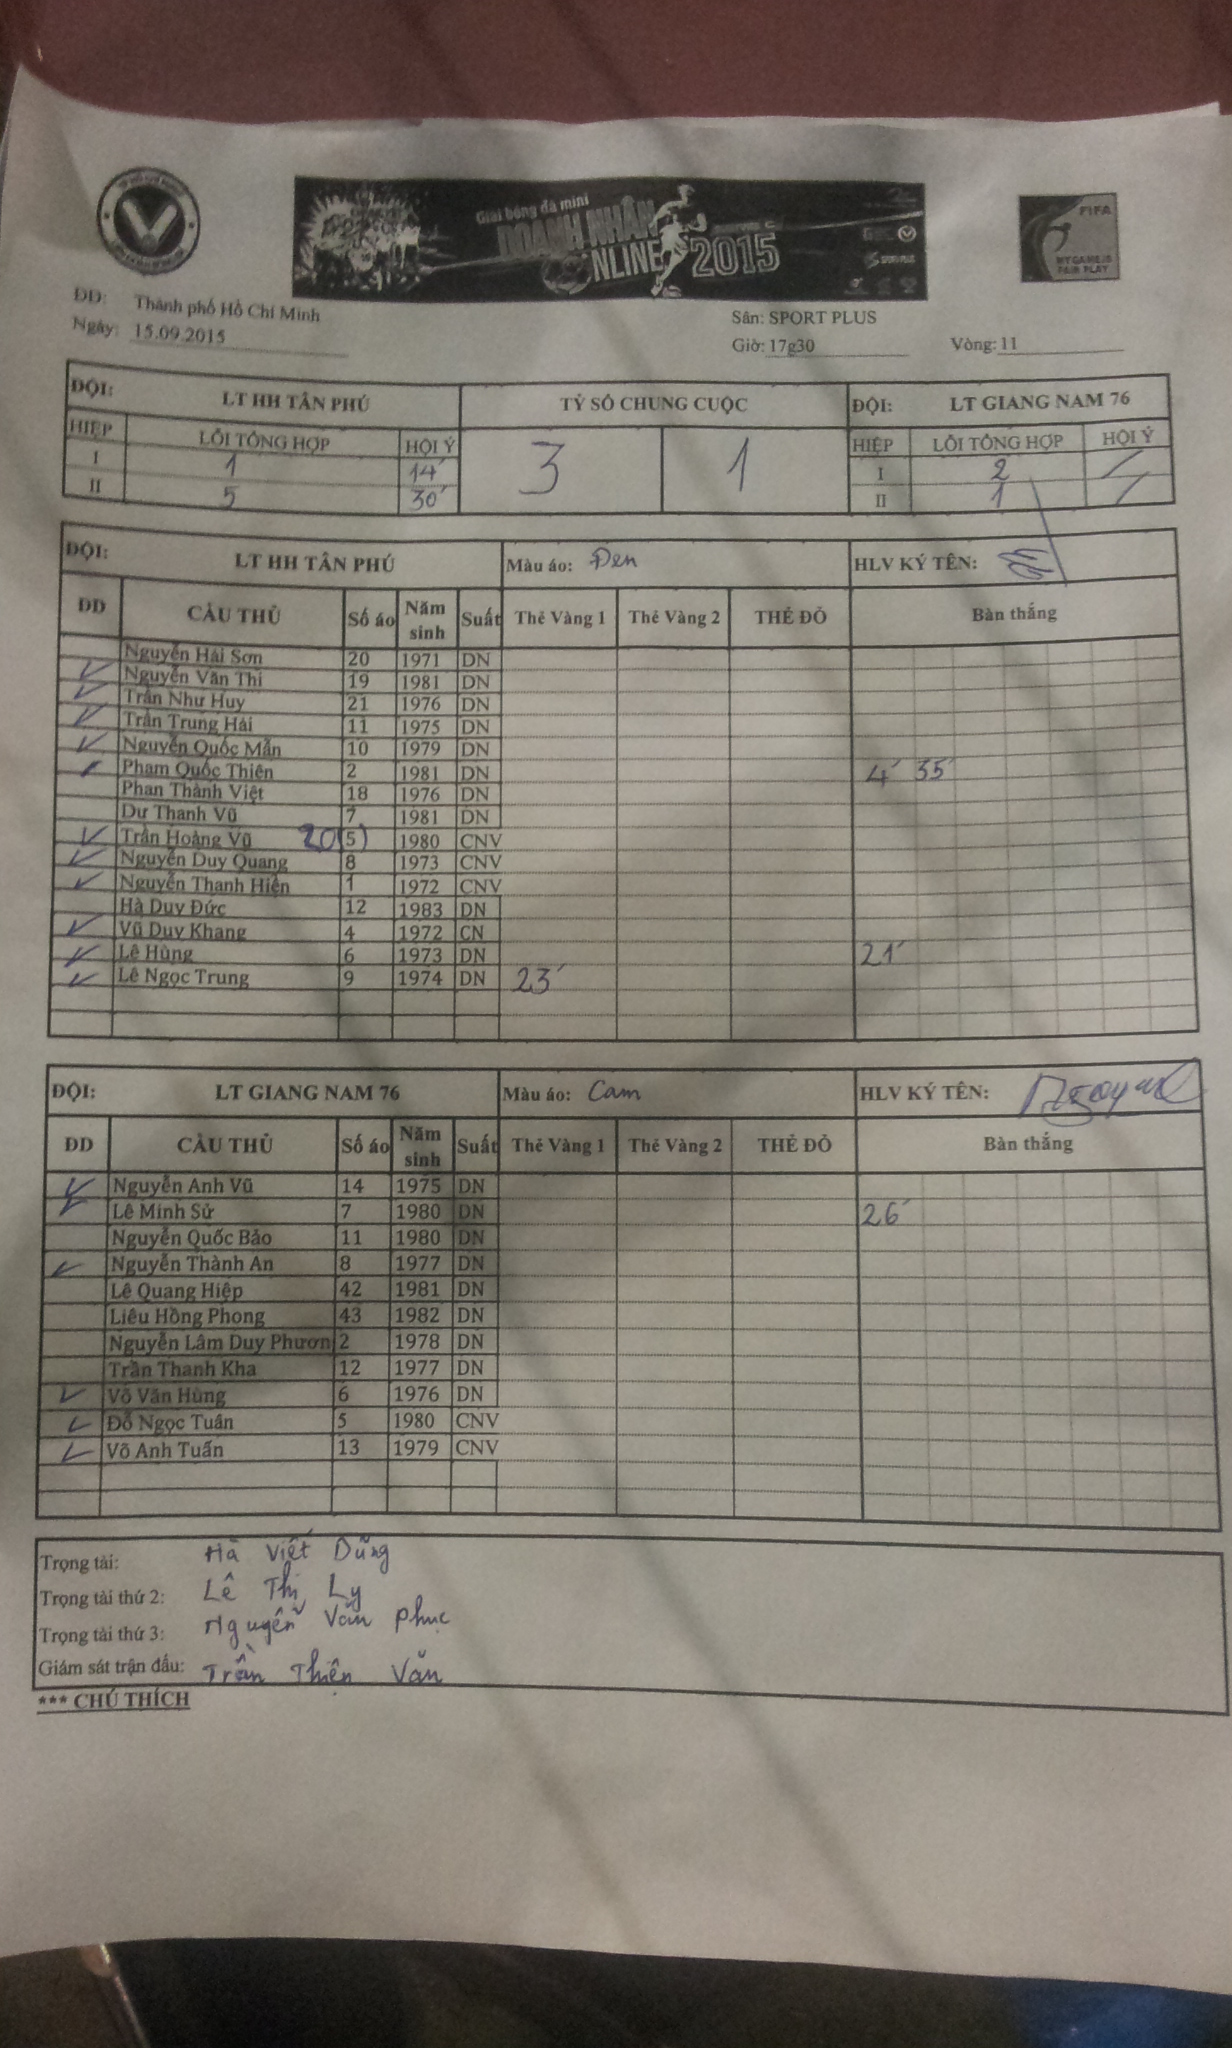 Giải bóng đá mini
DOANH NHÂN
NLINE 2015
SPORT PLUS
FIFA
MY GAME IS
FAIR PLAY
ĐD: Thành phố Hồ Chí Minh
Ngày: 15.09.2015
Sân: SPORT PLUS
Giờ: 17g30 Vòng: 11
ĐỘI: LT HH TÂN PHÚ TỶ SỐ CHUNG CUỘC ĐỘI: LT GIANG NAM 76
HIỆP LỖI TỔNG HỢP HỘI Ý 3 1 HIỆP LỖI TỔNG HỢP HỘI Ý
I 1 14' I 2
II 5 30' II 1
ĐỘI: LT HH TÂN PHÚ Màu áo: Đen HLV KÝ TÊN:
ĐD CẦU THỦ Số áo Năm sinh Suất Thẻ Vàng 1 Thẻ Vàng 2 THẺ ĐỎ Bàn thắng
Nguyễn Hải Sơn 20 1971 DN
Nguyễn Văn Thi 19 1981 DN
Trần Như Huy 21 1976 DN
Trần Trung Hải 11 1975 DN
Nguyễn Quốc Mẫn 10 1979 DN
Phạm Quốc Thiên 2 1981 DN 4' 35'
Phan Thành Việt 18 1976 DN
Dư Thanh Vũ 7 1981 DN
Trần Hoàng Vũ 20 (5) 1980 CNV
Nguyễn Duy Quang 8 1973 CNV
Nguyễn Thanh Hiền 1 1972 CNV
Hà Duy Đức 12 1983 DN
Vũ Duy Khang 4 1972 CN
Lê Hùng 6 1973 DN 21'
Lê Ngọc Trung 9 1974 DN 23'
ĐỘI: LT GIANG NAM 76 Màu áo: Cam HLV KÝ TÊN:
ĐD CẦU THỦ Số áo Năm sinh Suất Thẻ Vàng 1 Thẻ Vàng 2 THẺ ĐỎ Bàn thắng
Nguyễn Anh Vũ 14 1975 DN
Lê Minh Sử 7 1980 DN 26'
Nguyễn Quốc Bảo 11 1980 DN
Nguyễn Thành An 8 1977 DN
Lê Quang Hiệp 42 1981 DN
Liêu Hồng Phong 43 1982 DN
Nguyễn Lâm Duy Phươn 2 1978 DN
Trần Thanh Kha 12 1977 DN
Võ Văn Hùng 6 1976 DN
Đỗ Ngọc Tuân 5 1980 CNV
Võ Anh Tuấn 13 1979 CNV
Trọng tài: Hà Viết Dũng
Trọng tài thứ 2: Lê Thị Ly
Trọng tài thứ 3: Nguyễn Văn Phục
Giám sát trận đấu: Trần Thiện Văn
*** CHÚ THÍCH